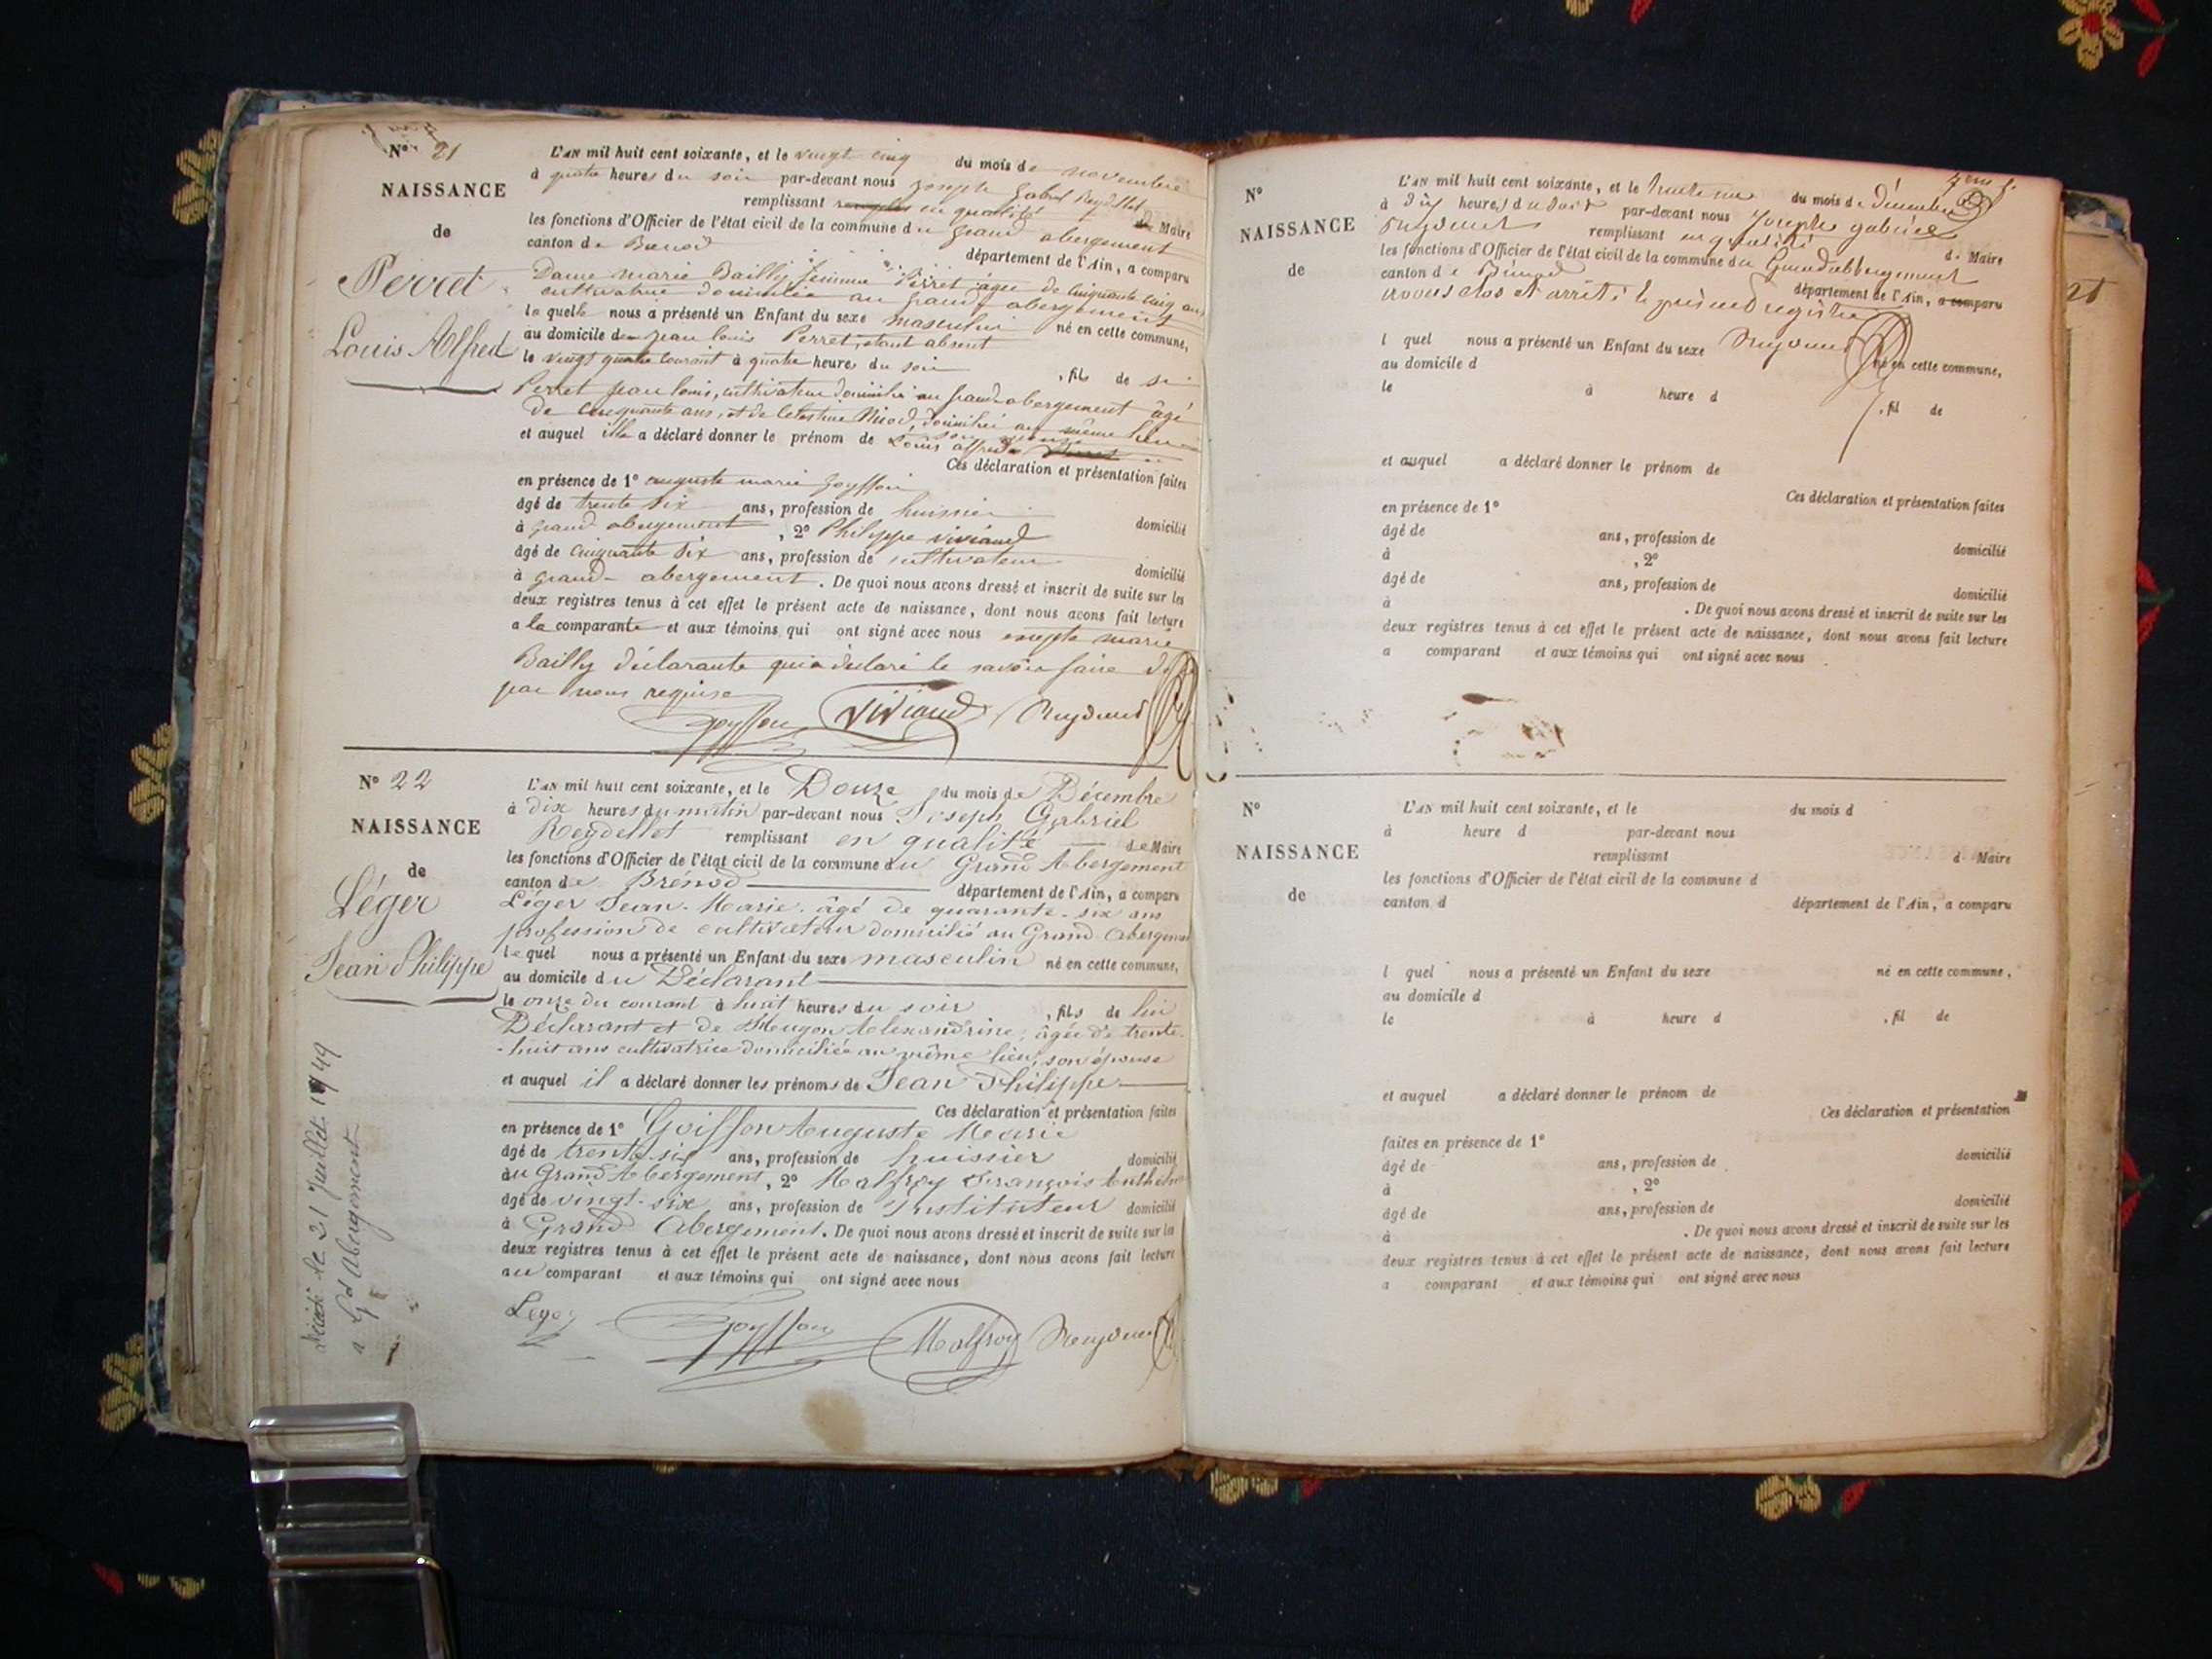 Nº 21
NAISSANCE
de
Perret
Louis Alfred
L'AN mil huit cent soixante, et le vingt cinq du mois de novembre
à quatre heures du soir par-devant nous Joseph Gabriel Reydellet
remplissant en qualité de Maire
les fonctions d'Officier de l'état civil de la commune du grand abergement
canton de Brenod département de l'Ain, a comparu
Dame marie Bailly femme Perret âgée de cinquante cinq ans
cultivatrice domiciliée au grand abergement
la quelle nous a présenté un Enfant du sexe masculin né en cette commune,
au domicile de jean louis Perret, étant absent
le vingt quatre courant à quatre heures du soir , fils de
Perret jean louis, cultivateur domicilié au grand abergement âgé
de cinquante ans, et de Celestine Niod, domicilié au même lieu
son épouse
et auquel elle a déclaré donner le prénom de Louis alfred
Ces déclaration et présentation faites
en présence de 1º auguste marie goyffon
âgé de trente six ans, profession de huissier domicilié
à grand abergement , 2º Philippe Viviand
âgé de cinquante six ans, profession de cultivateur domicilié
à grand-abergement. De quoi nous avons dressé et inscrit de suite sur les
deux registres tenus à cet effet le présent acte de naissance, dont nous avons fait lecture
a la comparante et aux témoins qui ont signé avec nous excepté marie
Bailly déclarante qui a déclaré le savoir faire de
par nous requise
Goyffon Viviand Reydellet
Nº 22
NAISSANCE
de
Léger
Jean Philippe
L'AN mil huit cent soixante, et le Douze du mois de Décembre
à dix heures du matin par-devant nous Joseph Gabriel
Reydellet remplissant en qualité de Maire
les fonctions d'Officier de l'état civil de la commune du Grand Abergement
canton de Brénod département de l'Ain, a comparu
Léger Jean-Marie âgé de quarante-six ans
profession de cultivateur domicilié au Grand Abergement
lequel nous a présenté un Enfant du sexe masculin né en cette commune,
au domicile du Déclarant
le onze du courant à huit heures du soir , fils de lui
Déclarant et de Mugon Alexandrine, âgée de trente-
-huit ans cultivatrice domiciliée au même lieu, son épouse
et auquel il a déclaré donner les prénoms de Jean Philippe
Ces déclaration et présentation faites
en présence de 1º Goiffon Auguste Marie
âgé de trente six ans, profession de huissier domicilié
au Grand Abergement, 2º Malfroy François Anthelme
âgé de vingt-six ans, profession de Instituteur domicilié
à Grand Abergement. De quoi nous avons dressé et inscrit de suite sur les
deux registres tenus à cet effet le présent acte de naissance, dont nous avons fait lecture
au comparant et aux témoins qui ont signé avec nous
Leger Goyffon Malfroy Reydellet
Décédé le 31 Juillet 1949
a Gd Abergement
Nº
NAISSANCE
de
L'AN mil huit cent soixante, et le trente un du mois de décembre
à dix heures du soir par-devant nous Joseph gabriel
Reydellet remplissant en qualité de Maire
les fonctions d'Officier de l'état civil de la commune du Grand abbergement
canton de Brénod département de l'Ain, a comparu
avons clos et arrêté le présent registre
Reydellet
l quel nous a présenté un Enfant du sexe né en cette commune,
au domicile d
le à heure d , fil de
et auquel a déclaré donner le prénom de
Ces déclaration et présentation faites
en présence de 1º
âgé de ans, profession de domicilié
à , 2º
âgé de ans, profession de domicilié
à . De quoi nous avons dressé et inscrit de suite sur les
deux registres tenus à cet effet le présent acte de naissance, dont nous avons fait lecture
a comparant et aux témoins qui ont signé avec nous .
Nº
NAISSANCE
de
L'AN mil huit cent soixante, et le du mois d
à heure d par-devant nous
remplissant d Maire
les fonctions d'Officier de l'état civil de la commune d
canton d département de l'Ain, a comparu
l quel nous a présenté un Enfant du sexe né en cette commune,
au domicile d
le à heure d , fil de
et auquel a déclaré donner le prénom de
Ces déclaration et présentation
faites en présence de 1º
âgé de ans, profession de domicilié
à , 2º
âgé de ans, profession de domicilié
à . De quoi nous avons dressé et inscrit de suite sur les
deux registres tenus à cet effet le présent acte de naissance, dont nous avons fait lecture
a comparant et aux témoins qui ont signé avec nous